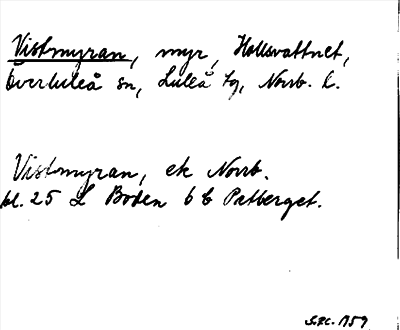 Vistmyran, myr, Hallsvattnet,
Överluleå sn, Luleå tg, Norrb. l.
Vistmyran, ek Norrb.
bl. 25 L Boden 6 b Patberget.
1959